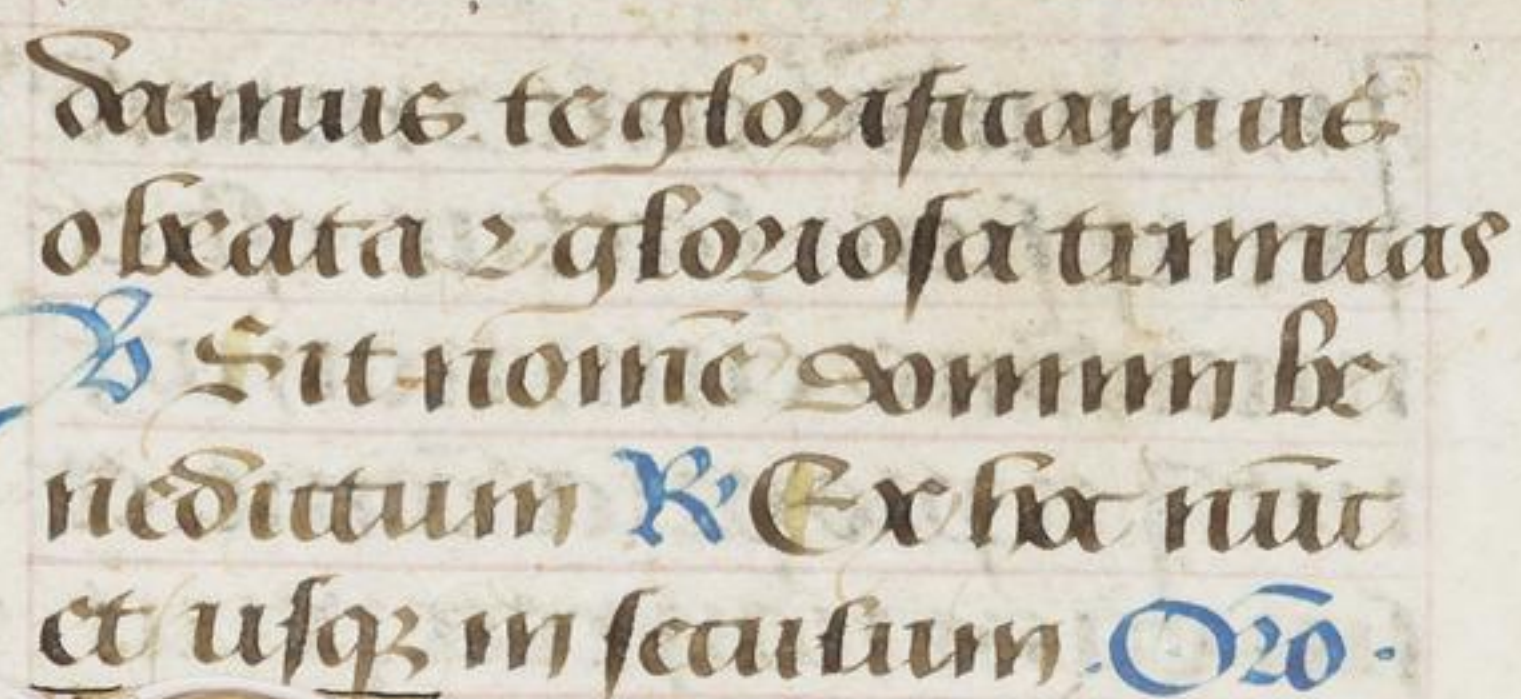 damus te glorificamus
o beata ⁊ gloriosa trinitas
℣ Sit nomē domini be
nedictum R' Ex hoc nūc
et usqꝫ in seculum . Orō .